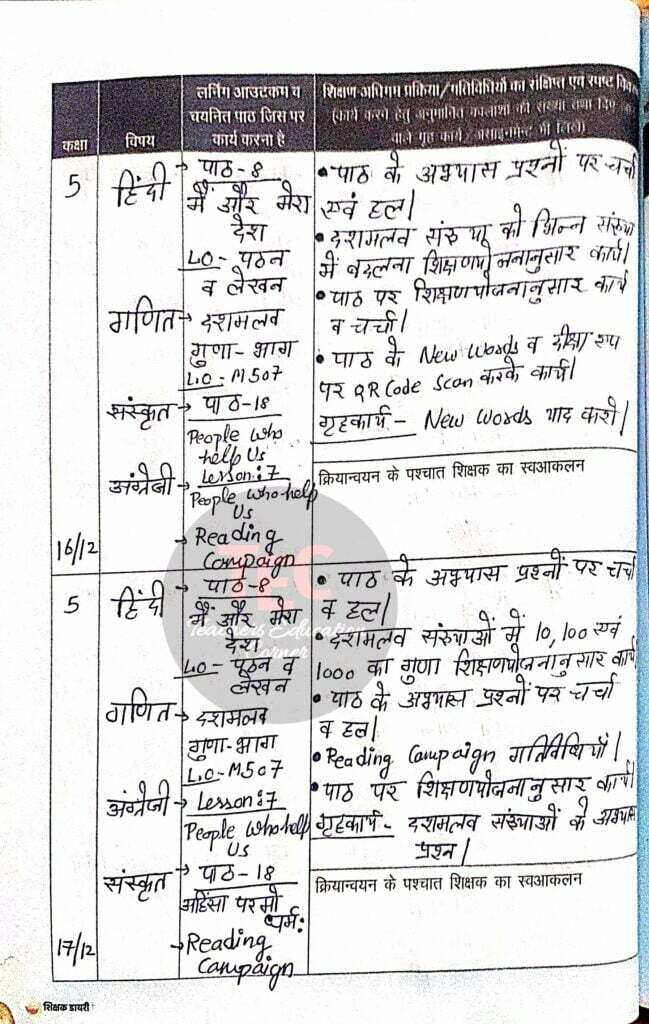 कक्षा
विषय
लर्निंग आउटकम व
चयनित पाठ जिस पर
कार्य करना है
शिक्षण अधिगम प्रक्रिया/गतिविधियों का संक्षिप्त एवं स्पष्ट
(कार्य करने हेतु अनुमानित कालांशों की संख्या तथा दिए
वाले गृह कार्य/असाइनमेंट भी लिखें)
5
हिंदी → पाठ-8
मैं और मेरा
देश
LO - पठन
व लेखन
गणित → दशमलव
गुणा-भाग
LO-M507
संस्कृत → पाठ-18
People Who
help Us
अंग्रेजी → Lesson:7
People Who help
Us
→ Reading
Campaign
16/12
• पाठ के अभ्यास प्रश्नों पर चर्चा
एवं हल।
• दशमलव संख्या को भिन्न संख्या
में बदलना शिक्षणयोजनानुसार कार्य।
• पाठ पर शिक्षणयोजनानुसार कार्य
व चर्चा।
• पाठ के New Words व दीक्षा एप
पर QR Code Scan करके कार्य।
गृहकार्य - New Words याद करो।
क्रियान्वयन के पश्चात शिक्षक का स्वआकलन
5
हिंदी → पाठ-8
मैं और मेरा
देश
LO - पठन व
लेखन
गणित → दशमलव
गुणा-भाग
LO-M507
अंग्रेजी → Lesson:7
People Who help
Us
संस्कृत → पाठ-18
अहिंसा परमो
धर्म:
→ Reading
Campaign
17/12
• पाठ के अभ्यास प्रश्नों पर चर्चा
व हल।
• दशमलव संख्याओं में 10,100 एवं
1000 का गुणा शिक्षणयोजनानुसार कार्य
• पाठ के अभ्यास प्रश्नों पर चर्चा
व हल।
• Reading Campaign गतिविधियाँ।
• पाठ पर शिक्षणयोजनानुसार कार्य।
गृहकार्य - दशमलव संख्याओं के अभ्यास
प्रश्न।
क्रियान्वयन के पश्चात शिक्षक का स्वआकलन
TEC
Teachers Education
Corner
शिक्षक डायरी